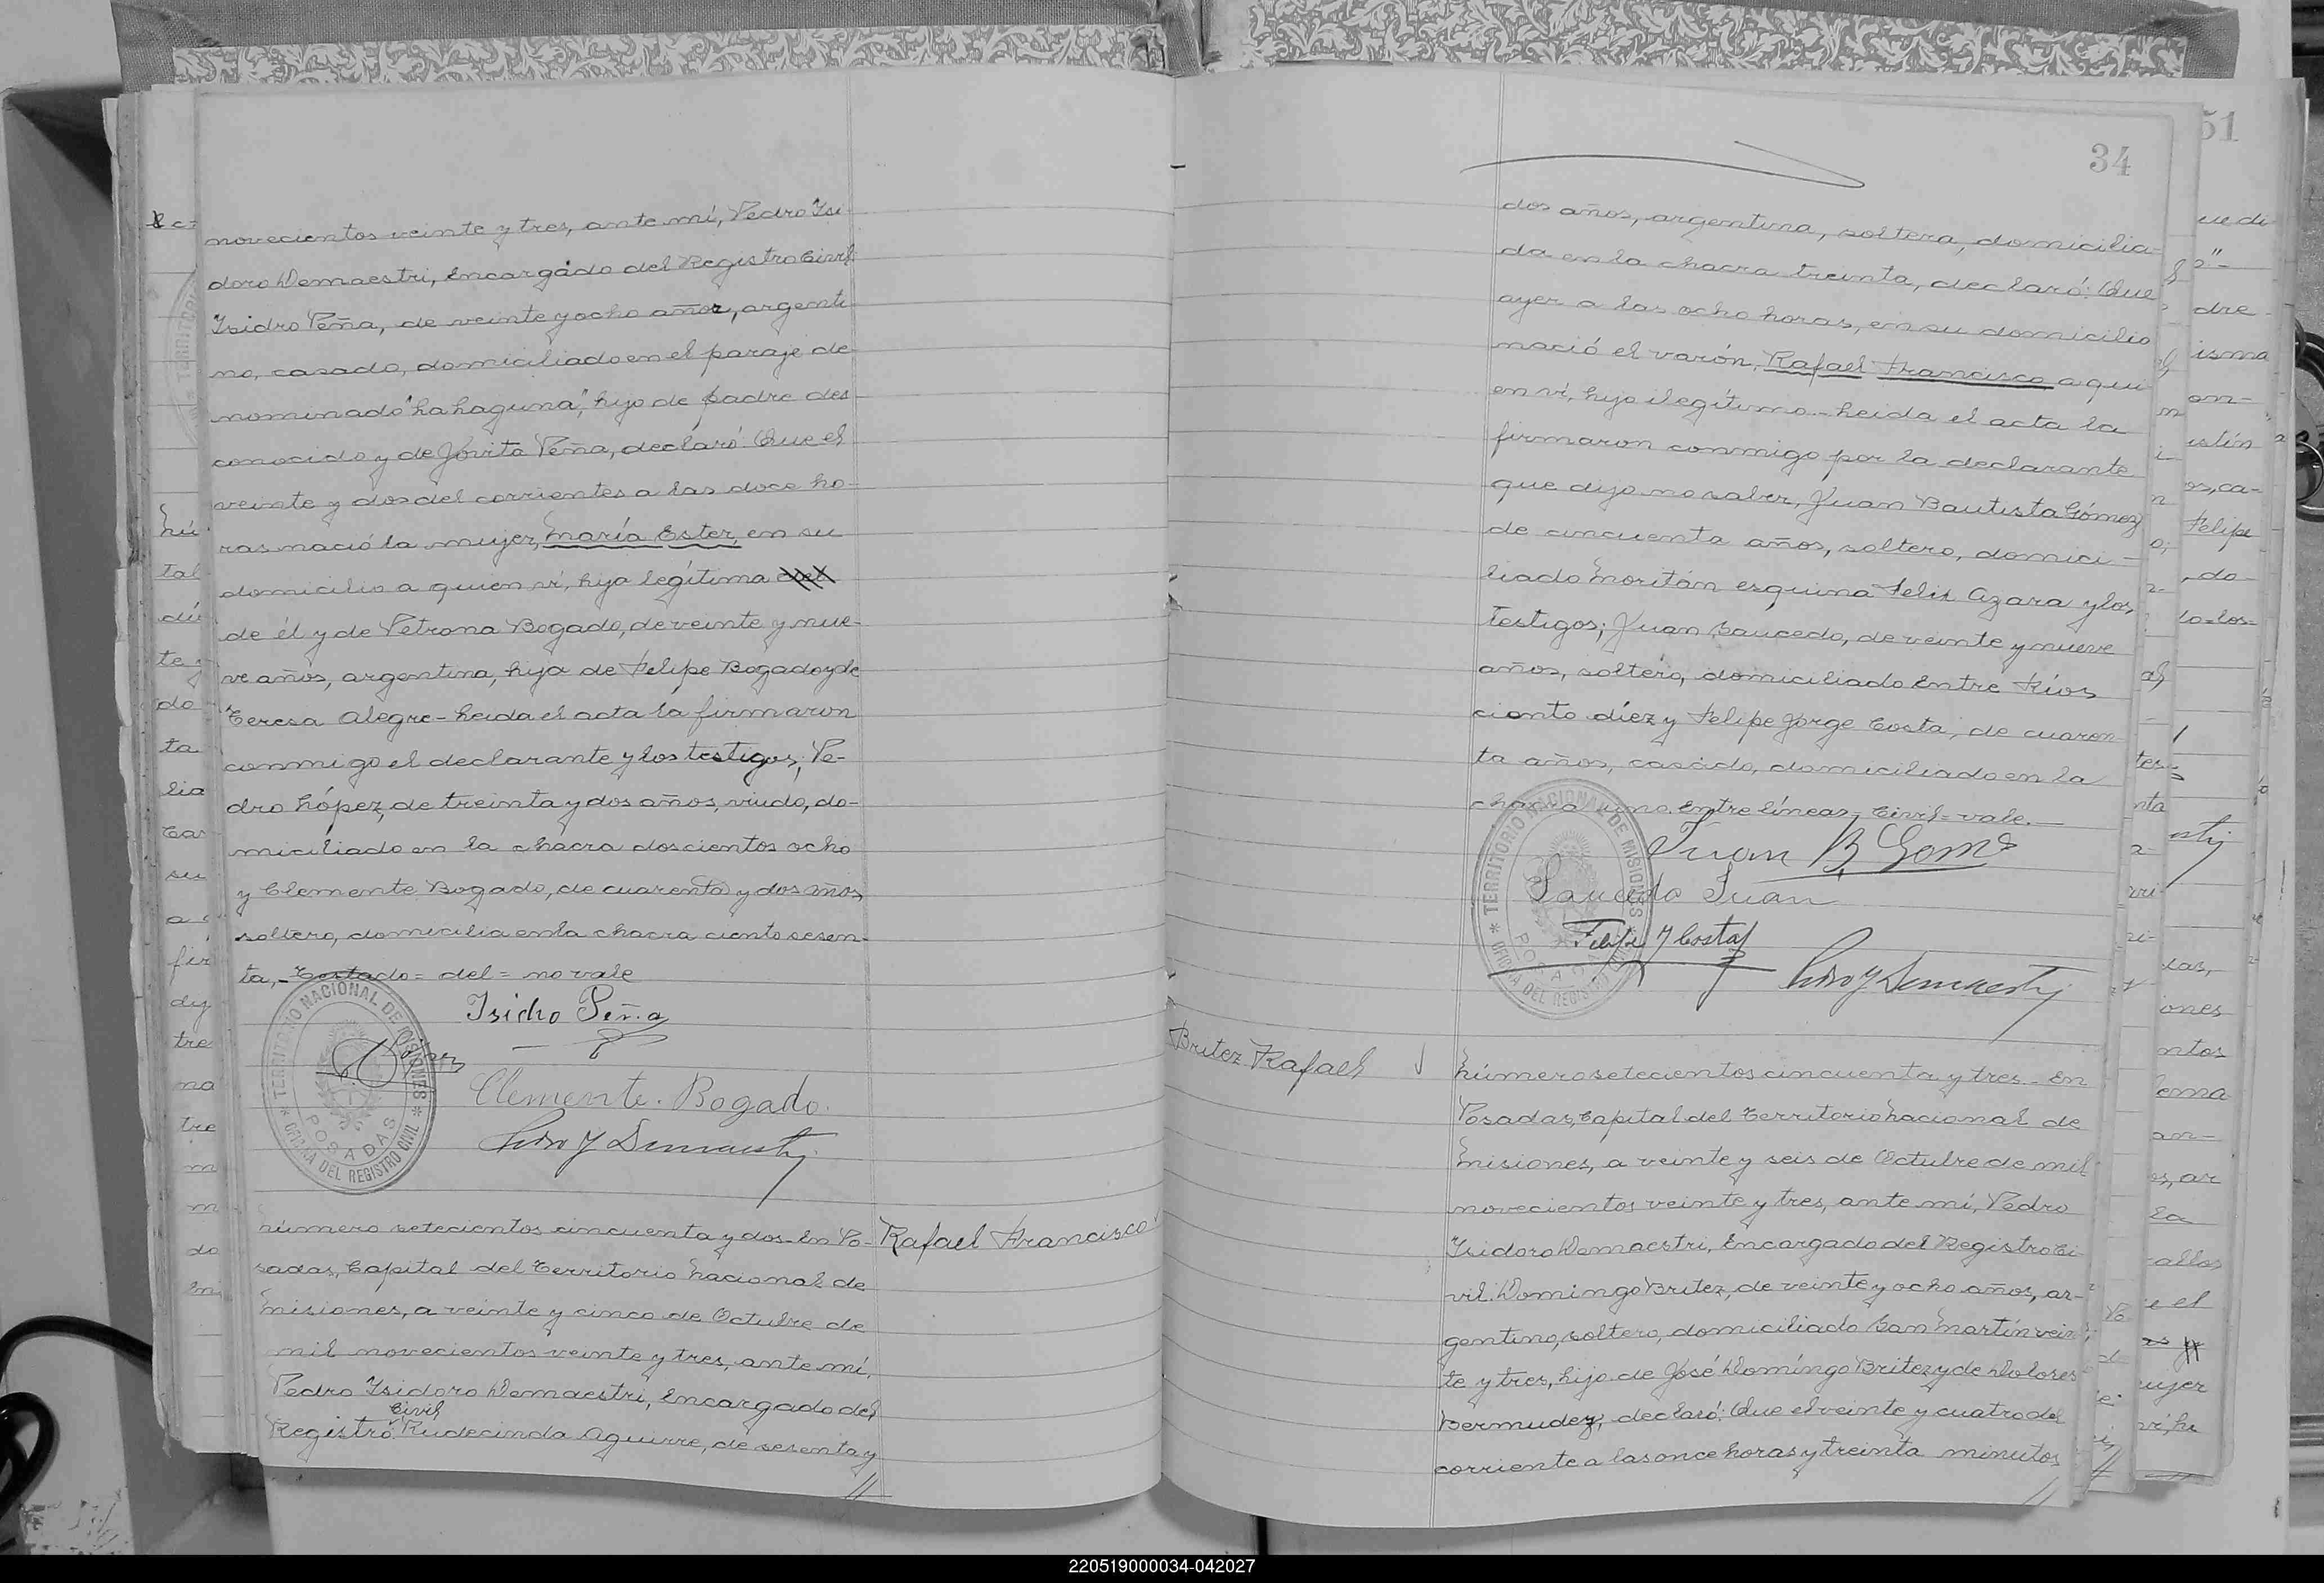 novecientos veinte y tres, ante mí, Pedro Isi-
doro Demaestri, Encargado del Registro Civil
Isidro Peña, de veinte y ocho años, argenti-
no, casado, domiciliado en el paraje de-
nominado "La Laguna", hijo de padre des-
conocido y de Jovita Peña, declaró: Que el
veinte y dos del corrientes a las doce ho-
ras nació la mujer, María Ester, en su
domicilio a quien ví, hija legítima del
de él y de Petrona Bogado, de veinte y nue-
ve años, argentina, hija de Felipe Bogado y de
Teresa Alegre - Leida el acta la firmaron
conmigo el declarante y los testigos; Pe-
dro López, de treinta y dos años, viudo, do-
miciliado en la chacra doscientos ocho
y Clemente Bogado, de cuarenta y dos años
soltero, domicilia en la chacra ciento sesen-
ta, - Testado = del = no vale
Isidro Peña
Clemente. Bogado.
TERRITORIO NACIONAL DE MISIONES
POSADAS
OFICINA DEL REGISTRO CIVIL
Rafael Francisco
Número setecientos cincuenta y dos - En Po-
sadas, Capital del Territorio Nacional de
Misiones, a veinte y cinco de Octubre de
mil novecientos veinte y tres, ante mí,
Pedro Isidoro Demaestri, Encargado del
Civil
Registro, Rudecinda Aguirre, de sesenta y
34
dos años, argentina, soltera, domicilia-
da en la chacra treinta, declaró: Que
ayer a las ocho horas, en su domicilio
nació el varón, Rafael Francisco a qui-
en ví, hijo ilegítimo - Leida el acta la
firmaron conmigo por la declarante
que dijo no saber, Juan Bautista Gómez
de cincuenta años, soltero, domici-
liado Moritán esquina Felix Azara y los
testigos; Juan Saucedo, de veinte y nueve
años, soltero, domiciliado Entre Ríos
ciento diez y Felipe Jorge Costa, de cuaren-
ta años, casado, domiciliado en la
chacra uno. Entre líneas, Civil = vale. -
Juan B. Gomez
Saucedo Juan
Felipe J Costa
TERRITORIO NACIONAL DE MISIONES
POSADAS
OFICINA DEL REGISTRO CIVIL
Britez Rafael
Número setecientos cincuenta y tres - En
Posadas, Capital del Territorio Nacional de
Misiones, a veinte y seis de Octubre de mil
novecientos veinte y tres, ante mí, Pedro
Isidoro Demaestri, Encargado del Registro Ci-
vil. Domingo Britez, de veinte y ocho años, ar-
gentino, soltero, domiciliado San Martín vein-
te y tres, hijo de José Domingo Britez y de Dolores
Bermudez, declaró: Que el veinte y cuatro del
corriente a las once horas y treinta minutos
51
220519000034-042027